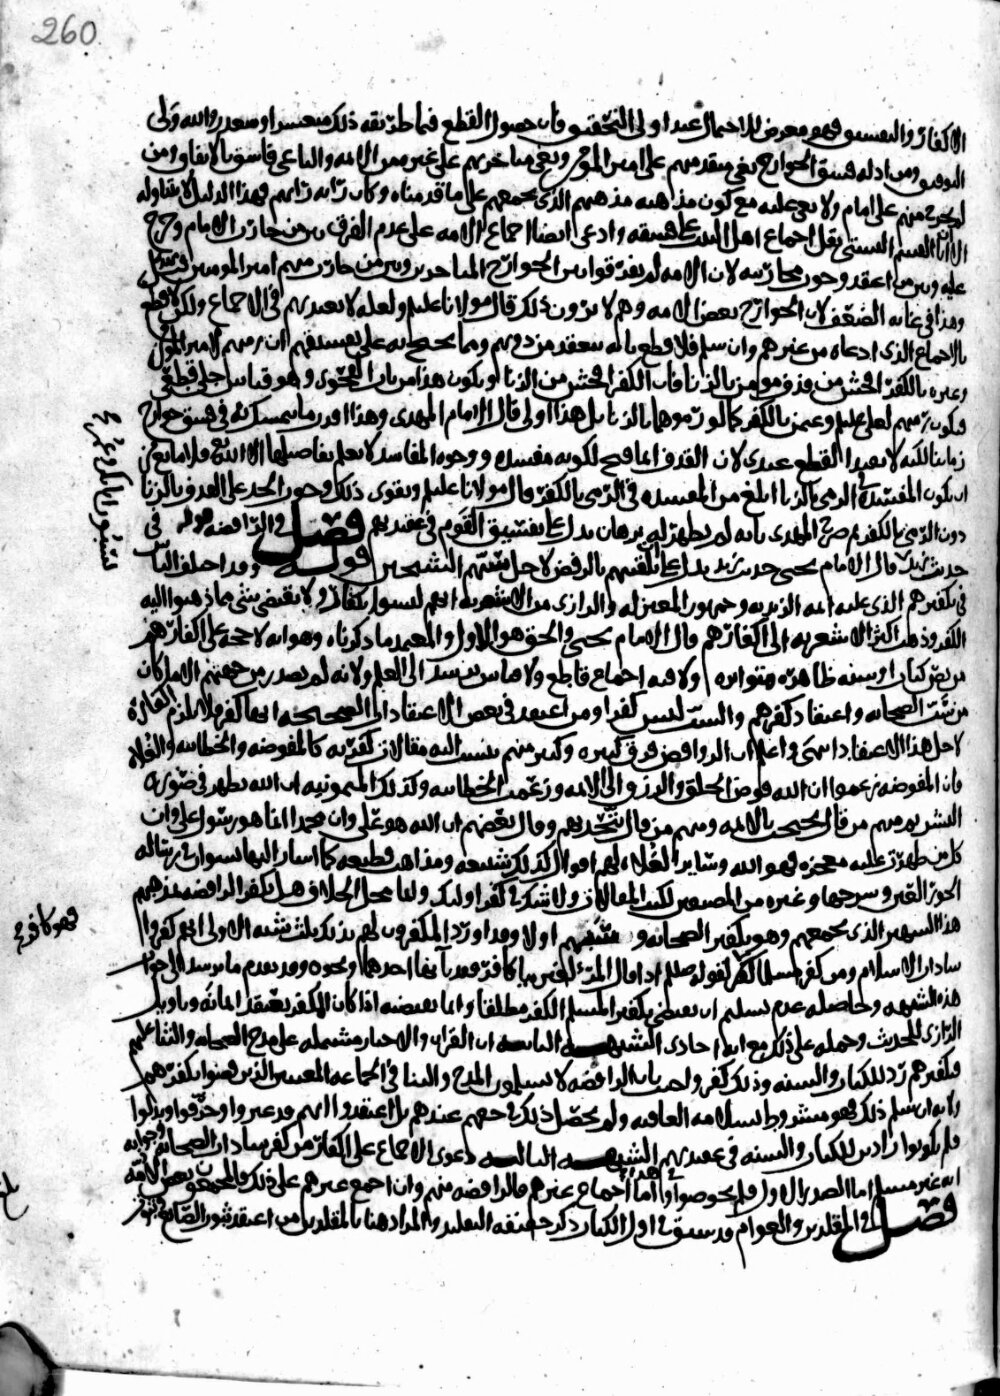 260
الاكفار والتفسيق فهو معرض للاحتمال عند اولى التحقيق فان حصول القطع فيما طريقه ذلك متعسر او متعذر والله ولى
التوفيق ومن ادله فسق الخوارج بغى متقدميهم على امير المومنين وبغى متاخريهم على غيره من الائمه والباغى فاسق بالاتفاق ومن
لم يخرج منهم على امام ولا بغى عليه مع كون مذهبه مذهبهم الذى يجمعهم على ما قدمناه وكان رايه رايهم فهذا الدليل لا يتناوله
الا ان القسم البستى نقل اجماع اهل البيت على فسقه وادعى ايضا اجماع الامه على عدم الفرق بين من حارب الامام وخرج
عليه وبين من اعتقد وجوب محاربته لان الامه لم يفرقوا بين الخوارج المتاخرين وبين من حارب منهم امير المومنين
وهذا فى غايه الضعف لان الخوارج بعض الامه وهم لا يرون ذلك قال مولانا عليلم ولعله لا يعتد بهم فى الاجماع ولكن لا قطع
بالاجماع الذى ادعاه من غيرهم وان سلم فلا قطع بانه ينعقد من دونهم ومما يحتج به على تفسيقهم ان رميهم لامير المومنين
وغيره بالكفر افحش من قذف مومن بالزنا فان الكفر افحش من الزنا ويكون هذا من باب الفحوى وهو قياس جلى قطعى
فيكون رميهم لعلى عليلم وعثمن بالكفر كما لو رموهما بالزنا بل هذا اولى قال الامام المهدى وهذا اقرب ما يتمسك به فى فسق خوارج
زماننا لكنه لا يفيد القطع عندى لان القذف انما قبح لكونه مفسده ووجوه المفاسد لا يعلم تفاصيلها الا الله تع فلا مانع من
ان يكون المفسده فى الرمى بالزنا ابلغ من المفسده فى الرمى بالكفر قال مولانا عليلم ويقوى ذلك وجوب الحد على القذف بالزنا
دون الرمى بالكفر ثم صرح المهدى بانه لم يظهر له برهان يدل على تفسيق القوم فى عقيدتهم فصل فى الرافضه قوله فى
حديث زيد قال الامام يحيى حديث زيد يدل على تلقيبهم بالرفض لاجل سبهم الشيخين قوله وقد اختلف الناس
فى تكفيرهم الذى عليه ائمه الزيديه وجمهور المعتزله والرازى من الاشعريه انهم ليسوا بكفار ولا يقتضى شى مما ذهبوا اليه
الكفر وذهب اكثر الاشعريه الى اكفارهم قال الامام يحيى والحق هو الاول والمعتمد ما ذكرناه وهو انه لا حجة على اكفارهم
من نص كتاب او سنه ظاهره متواتره ولا فيه اجماع قاطع ولا قياس يستند الى العلم ولانه لم يصدر من جهتهم الا ما كان
من سب الصحابه واعتقاد كفرهم والسب ليس كفرا ومن اعتقد فى بعض الاعتقادات الصحيحه انها كفر فلا يلزم اكفاره
لاجل هذا الاعتقاد انتهى واعلم ان الروافض فرق كثيره وكثير منهم ينسب اليه مقالات كفريه كالمفوضه والخطابيه والغلاه
فان المفوضه زعموا ان الله فوض الخلق والرزق الى الائمه وزعمت الخطابيه وكذلك الميمونيه ان الله يظهر فى صورة
البشر ومنهم من قال يحتجب بالائمه ومنهم من قال يتحد بهم وقال بعضهم ان الله هو على وان محمدا انما هو رسول على وان
كل من ظهرت عليه معجزه فهو الله وساير الغلاه لهم اقوال كذلك شنيعه ومذاهب فظيعه كما اشار اليها نشوان فى رساله
الحور العين وشرحها وغيره من المصنفين لتلك المقالات ولا شك فى كفر اولئك وانما محل الخلاف هل يكفر الرافضه بمذهبهم
هذا الشهير الذى يجمعهم وهو تكفير الصحابه وسبهم اولا وقد اورد المكفرون لهم بذلك ثلث شبه الاولى انهم كفروا
سادات الاسلام ومن كفر مسلما كفر لقوله صللم اذا قال المرء لاخيه يا كافر فقد باء بها احدهما ونحوه وقد تقدم ما يرشد الى جواب
هذه الشبهه وحاصله عدم تسليم ان يقتضى تكفير المسلم الكفر مطلقا وانما يقتضيه اذا كان المكفر يعتقد ايمانه وتاويل
الرازى للحديث وحمله على ذلك مع انه احادى الشبهه الثانيه ان القران والاخبار مشتمله على مدح الصحابه والثنا عليهم
فتكفيرهم رد للكتاب والسنه وذلك كفر واجيب بان الرافضه لا يسلمون المدح والثنا فى الجماعه المعينين الذين قضوا بكفرهم
ولانه ان سلم ذلك فهو مشروط بسلامه العاقبه ولم يحصل ذلك فى حقهم عندهم بل اعتقدوا انهم قد غيروا وحرفوا وبدلوا
فلم يكونوا رادين للكتاب والسنه فى عقيدتهم الشبهه الثالثه دعوى الاجماع على اكفار من كفر سادات الصحابه وجوابه
انه غير مسلم اما الصدر الاول فلم يخوضوا فى هذا واما اجماع غيرهم فالرافضه منهم وان اجمع غيرهم على ذلك فالمجمعون بعض الامه
فصل فى المقلدين والعوام قد سبق فى اول الكتاب ذكر حقيقه التقليد والمراد هنا بالمقلدين من اعتقد ثبوت الصانع
فهو كافر صح